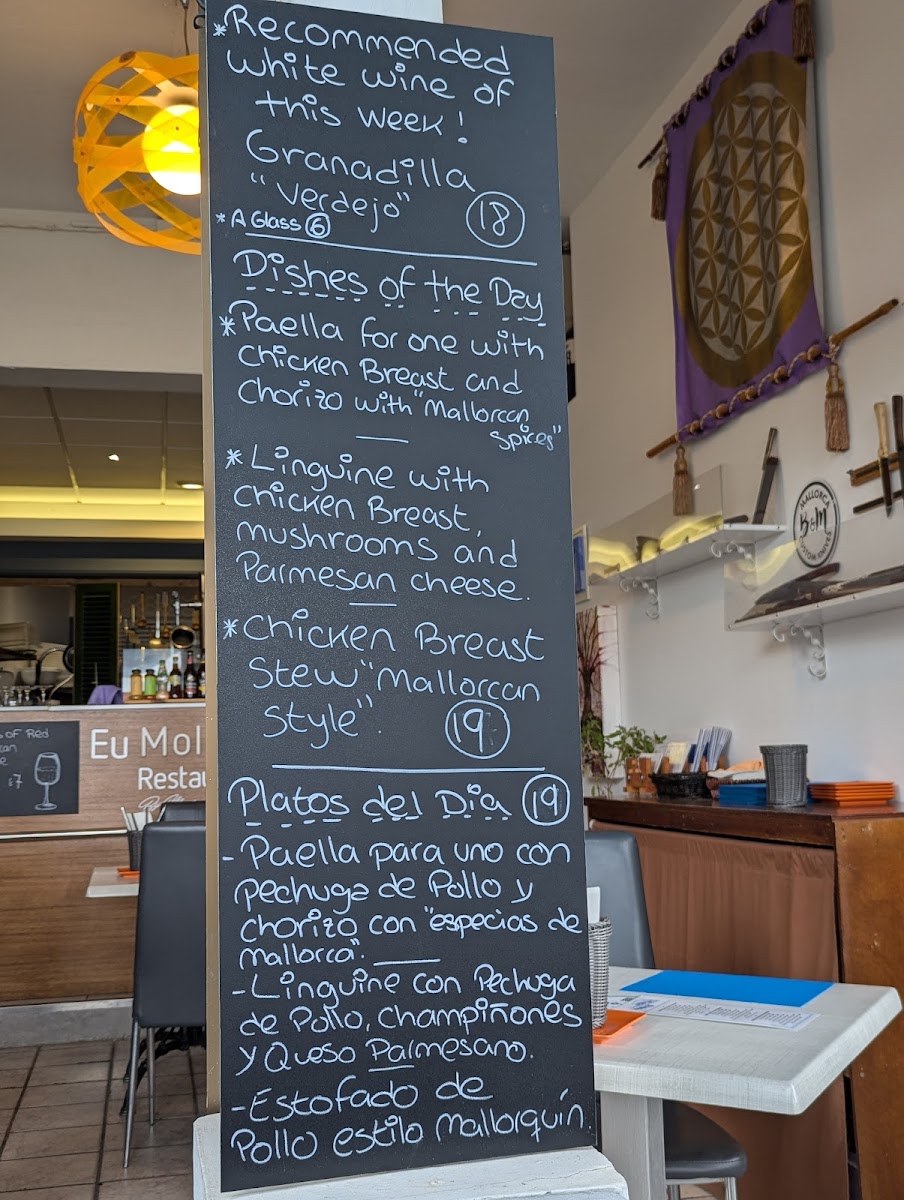 *Recommended
white wine of
this week!
Granadilla
"Verdejo" 18
*A Glass 6
Dishes of the Day
*Paella for one with
chicken Breast and
Chorizo with "Mallorcan
spices"
*Linguine with
chicken Breast,
mushrooms and
Parmesan cheese.
*Chicken Breast
Stew "Mallorcan
Style". 19
Platos del Dia 19
-Paella para uno con
Pechuga de Pollo y
chorizo con "especias de
mallorca".
-Linguine con Pechuga
de Pollo, Champiñones
y Queso Parmesano.
-Estofado de
Pollo estilo Mallorquín.
of Red
7
Eu Mol
Restau
MALLORCA
B&M